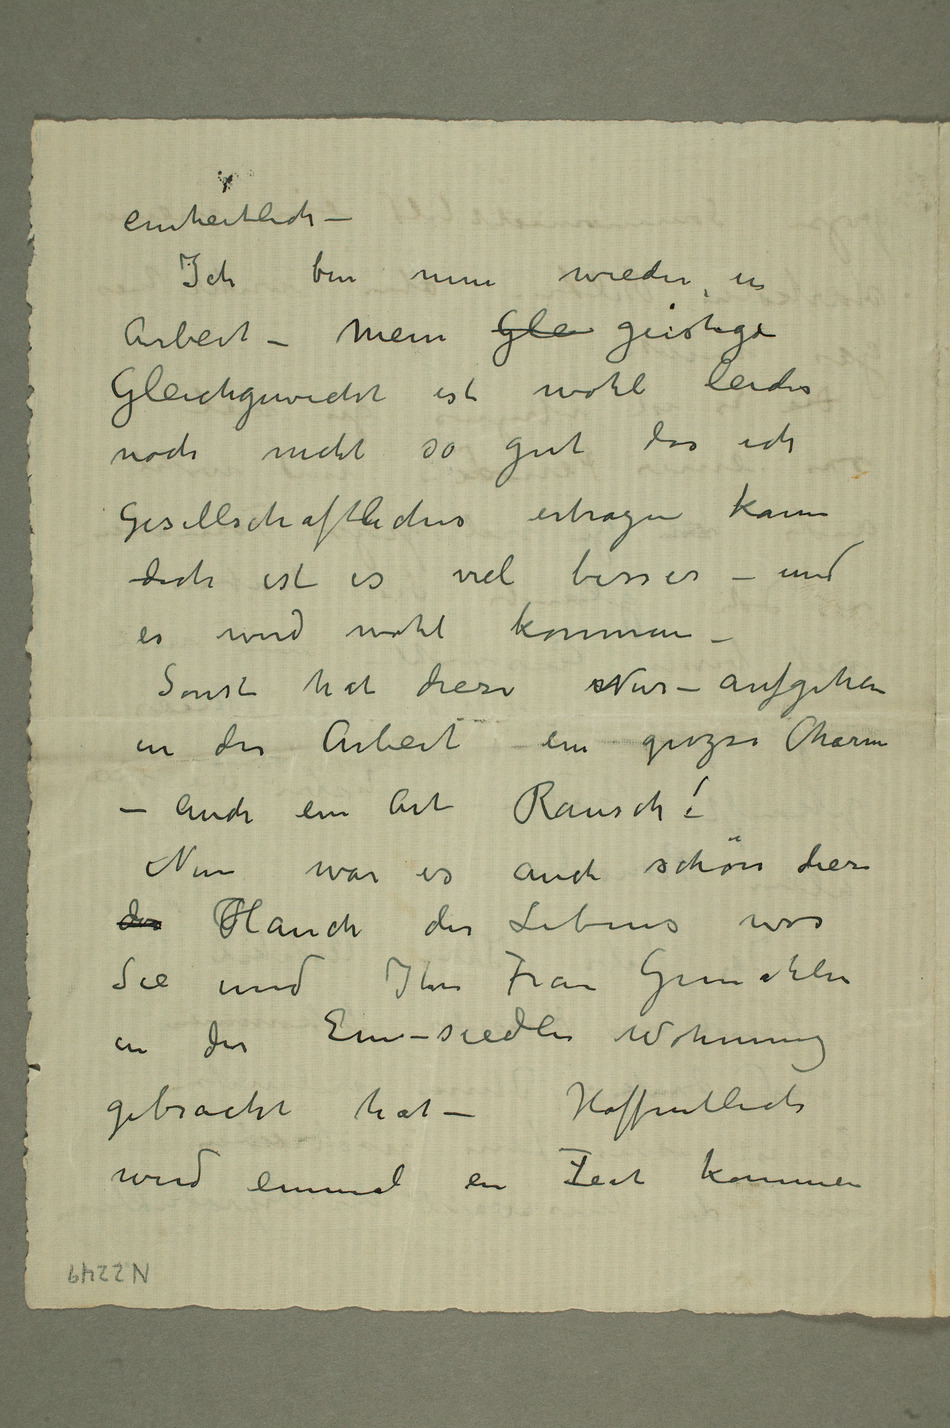 einheitlich –
Ich bin nun wieder in
Arbeit – Mein Gle geistige
Gleichgewicht ist wohl leider
noch nicht so gut das ich
Gesellschaftliches ertragen kann
doch ist es viel besser – und
es wird wohl kommen –
Sonst hat diese Nur – aufgehen
in der Arbeit ein grozse Charm
– auch ein Art Rausch!
Nun war es auch schön diese
der Hauch des Lebens was
Sie und Ihre Frau Gemahlin
in der Ein-siedler Wohnung
gebracht hat – Hoffentlich
wird einmal ein Zeit kommen
N 2249